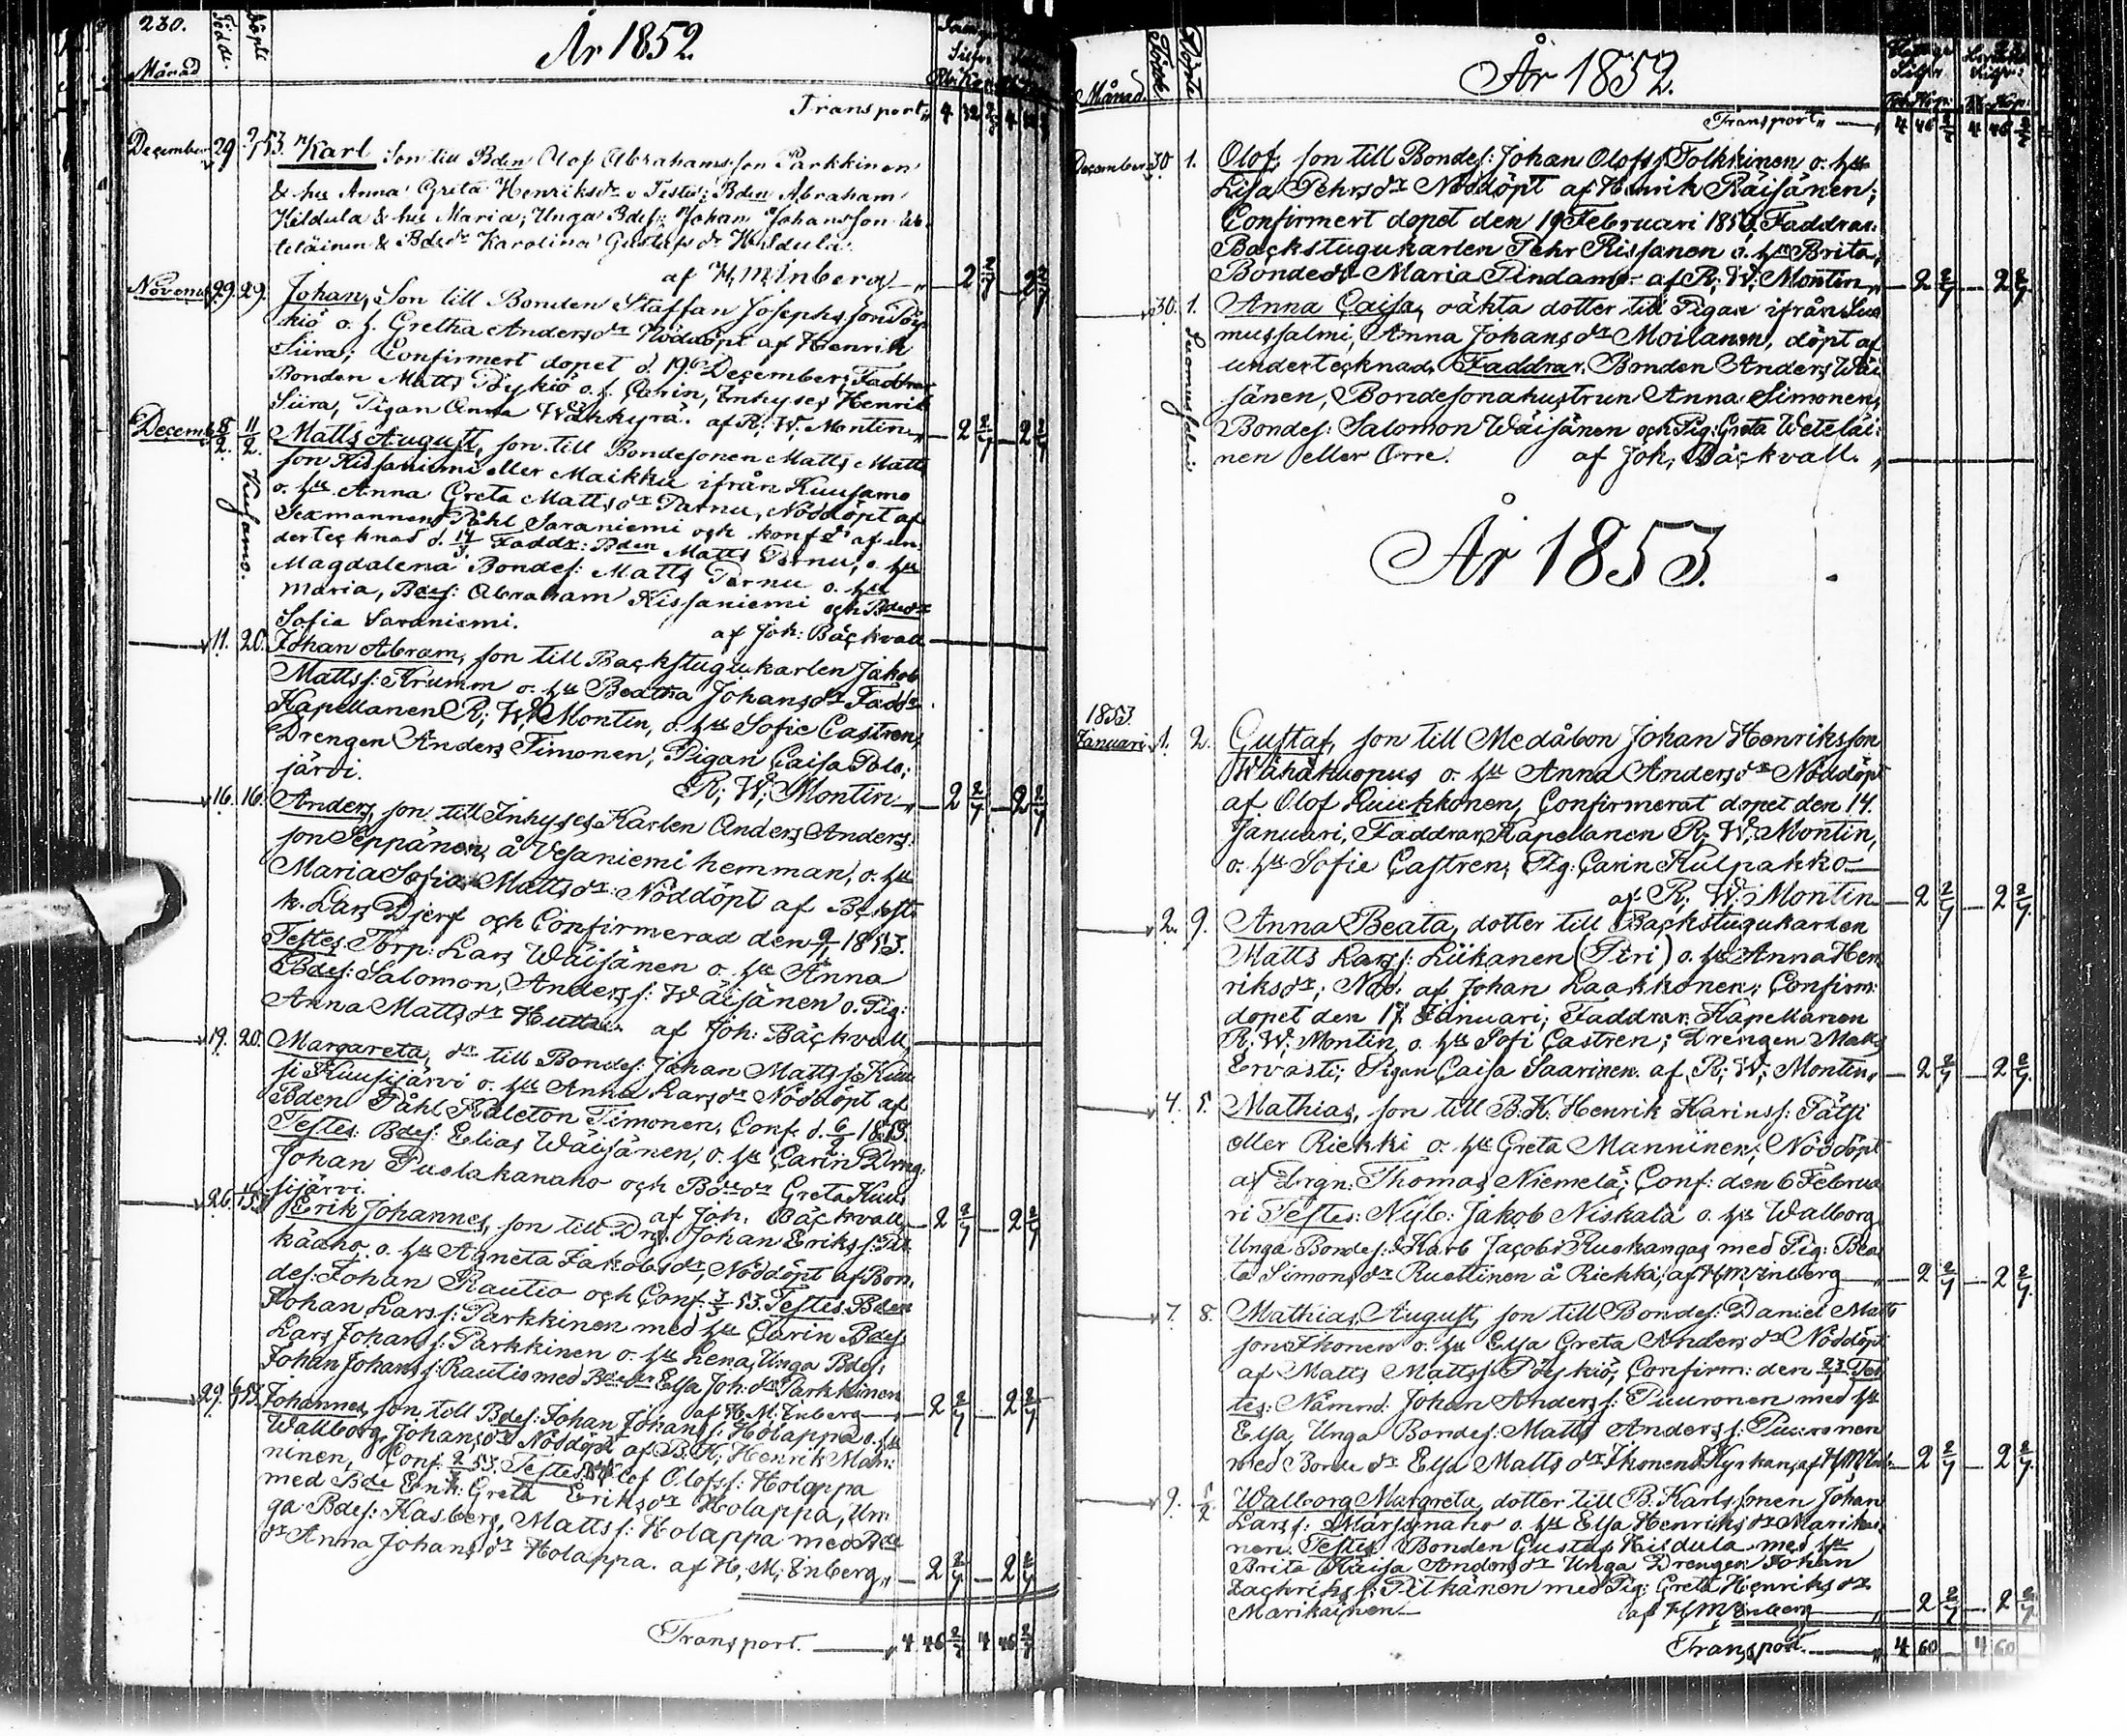 230.
År 1852
Månad
Född.
Döpt.
Transport 4 32
December 29 53 Karl Son till Bdn Olof Abrahamsson Parkkinen
& hu Anna Greta Henriksdr Testes: Bden Abraham
Kildula & hu Maria; Unga Bdes: Johan Johansson
teläinen & Bdedr Karolina Gustafsdr Kildula.
af H. M. Enberg 2 2/7 2 2/7
Novemb 29. 29. Johan, Son till Bonden Staffan Josephsson Pöy
kiö o. h. Gretha Andersdr Nöddöpt af Henrik
Siira; Confirmert dopet d. 19 December, Faddrar
Bonden Matts Pöykiö o. h. Carin, Inhyses Henrik
Siira, Pigan Anna Wähkyrä. af R; W; Montin 2 2/7 2 2/7
Decemb 8/2. 11/2. Kusamo. Matts August, son till Bondesonen Matts Matts
son Kissaniemi eller Maikku ifrån Kuusamo
o. hu Anna Greta Mattsdr Parnu, Nöddöpt af
Sexmannen Påhl Saraniemi och konf af un
dertecknad d. Faddr: Bden Matts Parnu, o. hu
Magdalena Bondes: Matts Parnu o. hu
Maria, Bdes: Abraham Kissaniemi och Bdedr
Sofia Saraniemi. af Joh: Bäckvall
11. 20. Johan Abram, son till Backstugukarlen Jakob
Mattss: Krumm o. hu Beatha Johansdr Faddr
Kapellanen R; W; Montin, o. hu Sofie Castren,
Drengen Anders Timonen, Pigan Caisa Polo;
järvi. R; W; Montin 2 2/7 2 2/7
16. 16. Anders, son till Inhyses Karlen Anders Anders
son Seppänen, å Vesaniemi hemman, o. hu
Maria Sofia Mattsdr: Nöddöpt af Backst
k. Lars Djerf och Confirmerad den 9/1 1853.
Testes Torp: Lars Wäisänen o. hu Anna
Bdes: Salomon, Anderss: Wäisänen o. Pig:
Anna Mattsdr Huttu. af Joh: Bäckvall,
19. 20. Margareta, dr till Bondes: Johan Matts s: Kuu
si Kuusijärvi o. hu Anna Larsdr Nöddöpt af
Bden Påhl Kaleton Timonen, Conf. d. 6/2 1853.
Testes: Bdes: Elias Wäisänen, o. hu Carin Dreng:
Johan Puolakanaho och Bdedr Greta Kuu
sijärvi. af Joh. Bäckvall 2 2/7 2 2/7
26. Erik Johannes, son till Drg. Johan Eriks s:
kääho o. hu Agneta Jakobsdr, Nöddöpt af Bon
des: Johan Rautio och Conf. 53. Testes: Bden
Johan Larss: Parkkinen med hu Carin Bdes
Lars Johans s: Parkkinen o. hu Lena, Unga Bdes:
Johan Johans s: Rautio med Bdedr Elsa Joh: dr Parkkinen
af H. M. Enberg 2 2/7 2 2/7
29. 53. Johannes, son till Bdes: Johan Johans s: Holappa o. hu
Walborg Johansdr Nöddöpt af B. K; Henrik Man
ninen, Conf. 53. Testes: Olof Olofs s: Holappa
med Bde Enk: Greta Eriksdr Holappa, Un
ga Bdes: Kasberg, Matts s: Holappa med Bde
dr Anna Johansdr Holappa. af H; M; Enberg 2 2/7 2 2/7
Transport. 4 46 2/7 4 46 2/7
År 1852.
Månad.
Född.
Döpte
Transport 4 46 2/7 4 46 2/7
December 30 1. Olof, son till Bondes: Johan Olofs s Tolkkinen o. hu
Lisa Pehrsdr Nöddöpt af Henrik Räisänen;
Confirmert dopet den 19 Februari 1853. Faddrar:
Backstugukarlen Pehr Rissanen o. hu Brita,
Bondedr Maria Pindamo af R; W; Montin 2 2/7 2 2/7
30. 1. Suomussalmi Anna Caisa, oäkta dotter till Pigan ifrån Suo
mussalmi, Anna Johansdr Moilanen, döpt af
undertecknad, Faddrar, Bonden Anders Wäi
sänen, Bondesonahustrun Anna Simonen,
Bondes: Salomon Wäisänen och Pig: Greta Weteläi
nen eller Orre. af Joh; Bäckvall.
År 1853.
1853.
Januari 1. 2. Gustaf, son till Medåbon Johan Henriksson
Wähäkuopus o. hu Anna Andersdr Nöddöpt
af Olof Luukkonen, Confirmerat dopet den 14.
Januari, Faddrar, Kapellanen R; W; Montin,
o. hu Sofie Castren, Pig: Carin Kulpakko
af R; W; Montin 2 2/7 2 2/7
2. 9. Anna Beata, dotter till Backstugukarlen
Matts Lars s: Liikanen (Piri) o. hu Anna Hen
riksdr; Nöd. af Johan Laakkonen; Confirm:
dopet den 17 Januari; Faddrar, Kapellanen
R; W; Montin o. hu Sofi Castren; Drengen Matts
Ervasti; Pigan Caisa Saarinen. af R; W; Montin 2 2/7 2 2/7
4. 5. Mathias, son till B. K. Henrik Karins s: Pätsi
eller Riekki o. hu Greta Manninen; Nöddöpt
af Drgn: Thomas Niemelä; Conf: den 6 Februa
ri Testes: Nyb: Jakob Niskala o. hu Walborg
Unga Bondes: Karl Jacobs Ruokangas med Pig: Bea
ta Simonsdr Ruottinen å Riekki; af H. M. Enberg 2 2/7 2 2/7
7. 8. Mathias August, son till Bondes: Daniel Matts
son Ikonen o. hu Elsa Greta Andersdr Nöddöpt
af Matts Mattss: Pöykiö, Confirm: den 23 Tes
tes: Nämnd: Johan Anders s: Puuronen med hu
Elsa, Unga Bondes: Matts Anders s: Puuronen
med Bondedr Elsa Mattsdr Ikonen i Kyrkan, af H M Enb 2 2/7 2 2/7
9. 1/2 Walborg Margreta, dotter till B. Karlssonen Johan
Lars s: Märssynaho o. hu Elsa Henriksdr Marikai
nen. Testes: Bonden Gustaf Kildula med hu
Brita Kaisa Andersdr Unga Drengen Johan
Zachriks s: Pitkänen med Pig: Greta Henriksdr
Marikainen af H. M. Enberg 2 2/7 2 2/7
Transport. 4 60 4 60